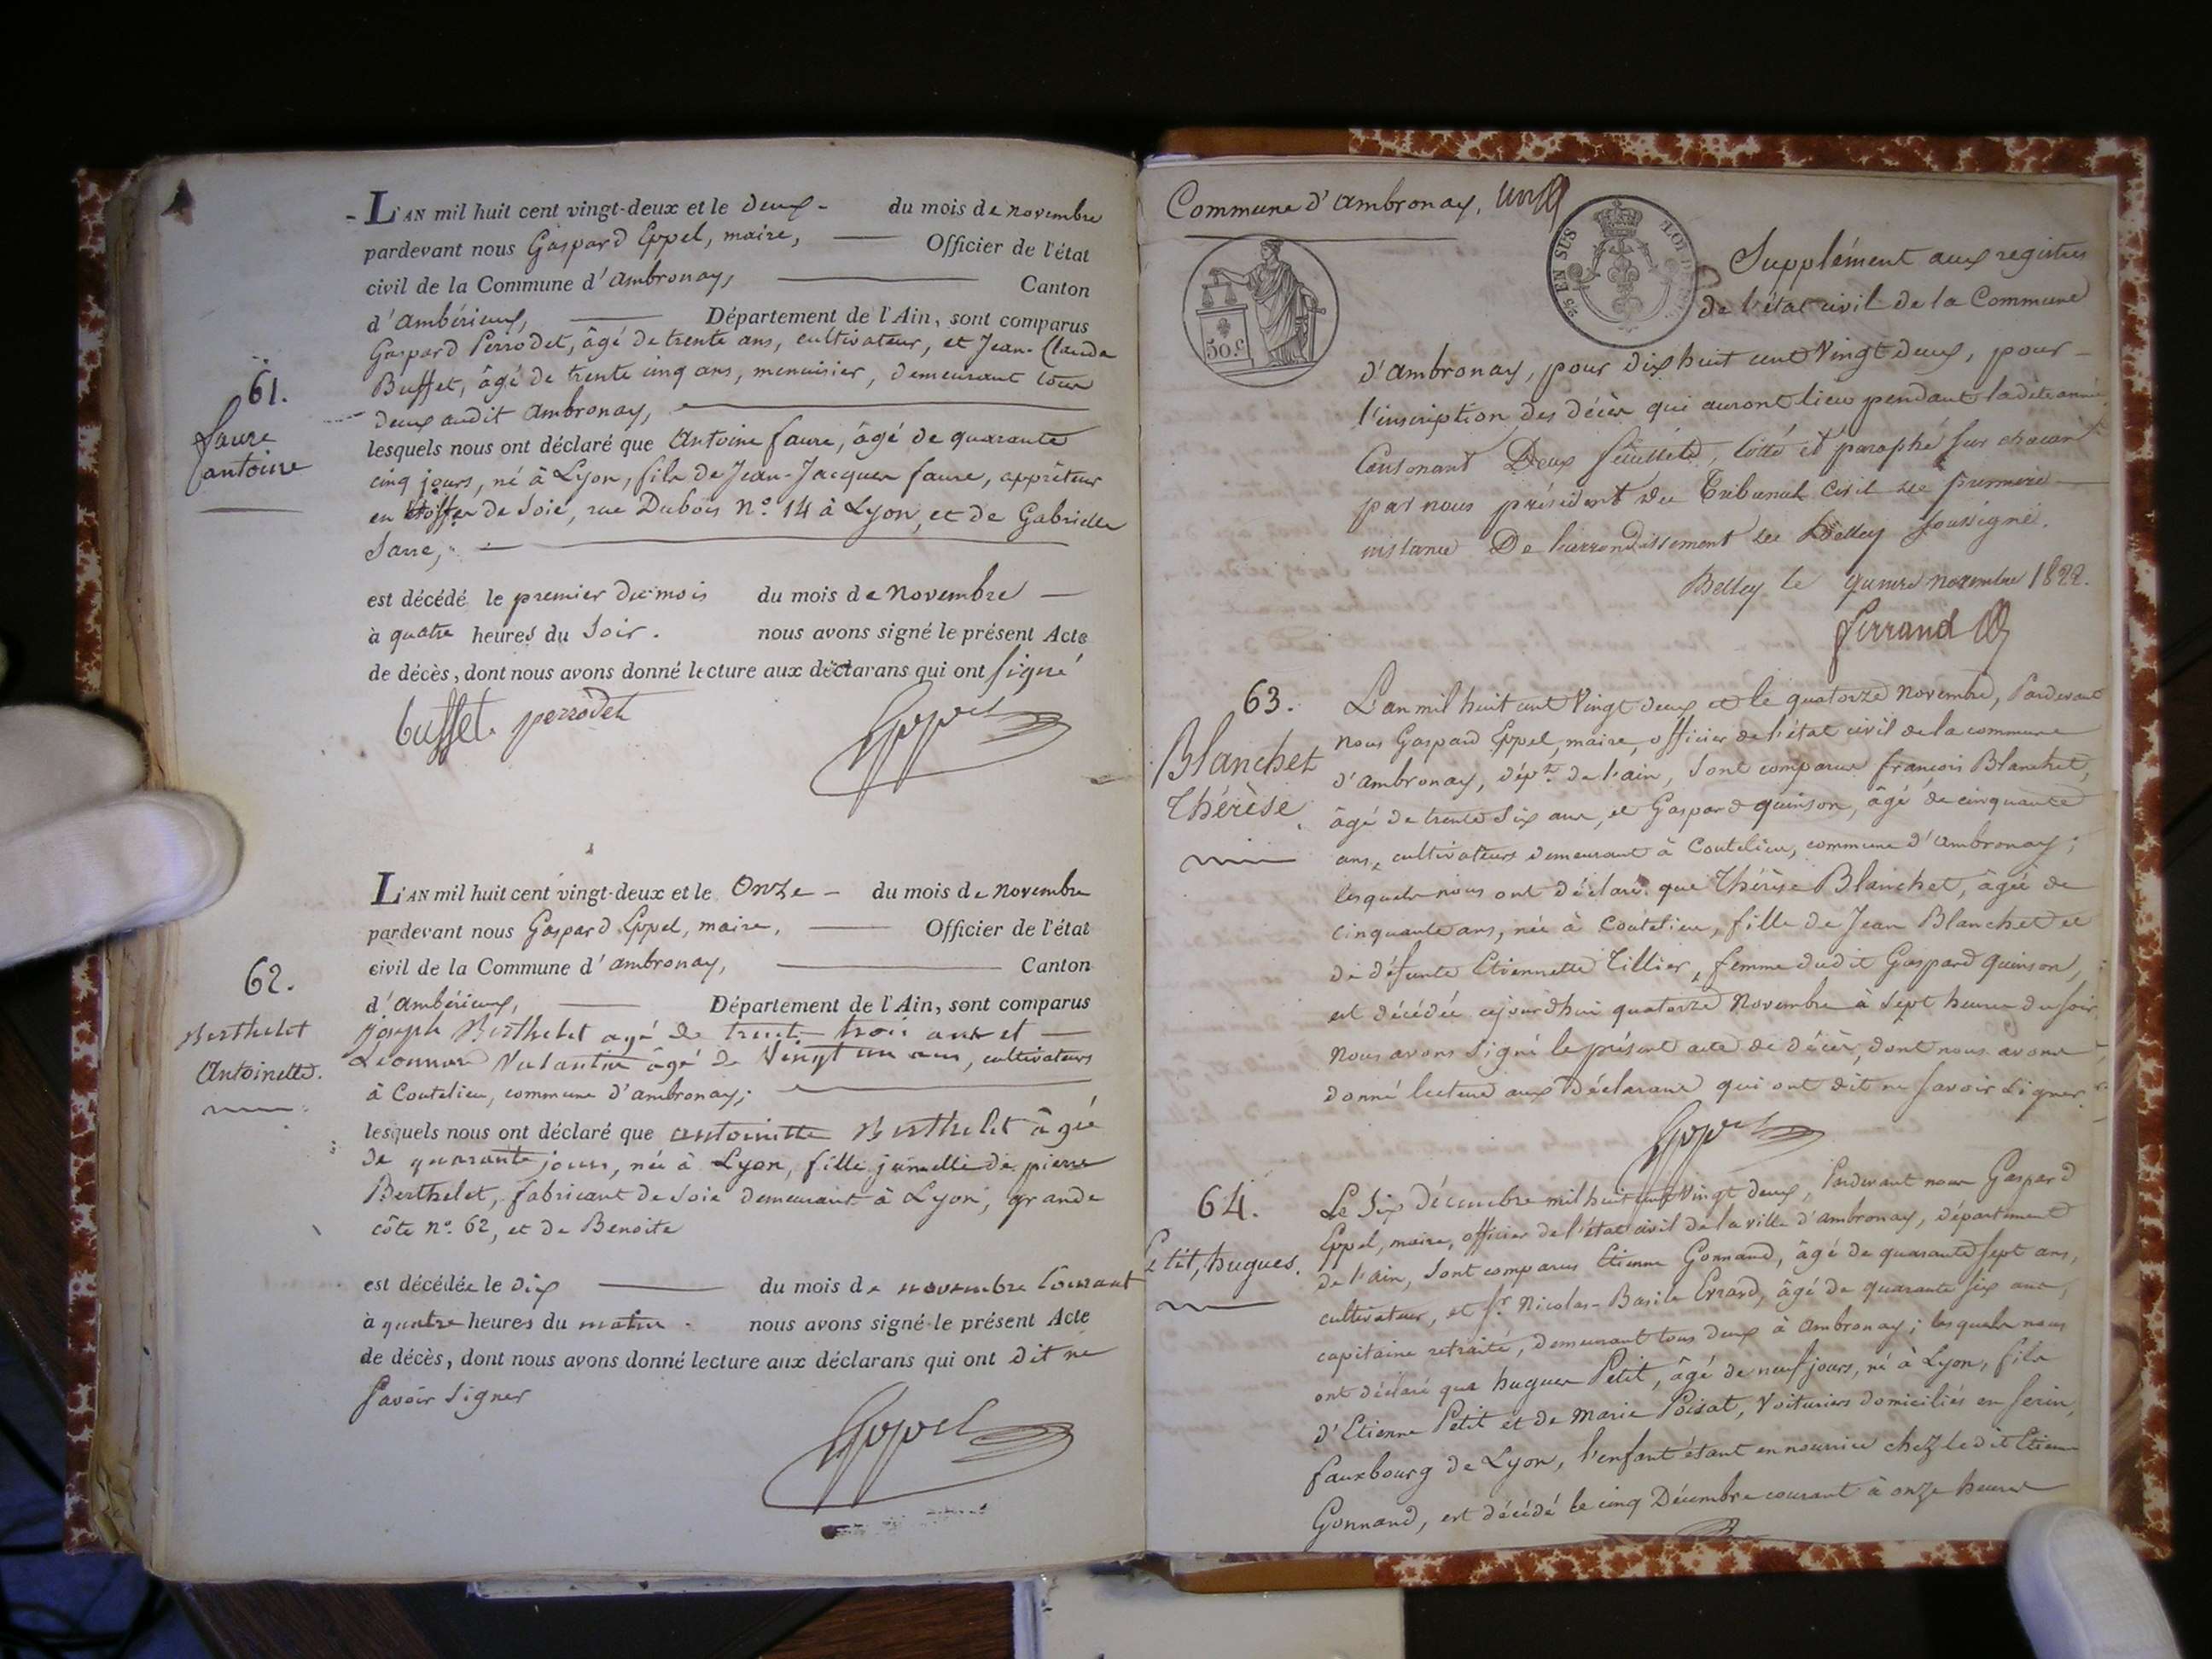 - L'AN mil huit cent vingt-deux et le deux - du mois de novembre
pardevant nous Gaspard Eppel, maire, Officier de l'état
civil de la Commune d'ambronay, Canton
d'ambérieux, Département de l'Ain, sont comparus
Gaspard Perrodet, âgé de trente ans, cultivateur, et Jean-Claude
Buffet, âgé de trente cinq ans, menuisier, demeurant tous
deux audit ambronay,
61.
faure
antoine
lesquels nous ont déclaré que Antoine faure, âgé de quarante
cinq jours, né à Lyon, fils de Jean-Jacques faure, apprêteur
en étoffes de Soie, rue Dubois n.º 14 à Lyon, et de Gabrielle
Sarre,
est décédé le premier du mois du mois de Novembre
à quatre heures du Soir. nous avons signé le présent Acte
de décès, dont nous avons donné lecture aux déclarans qui ont signé
buffet. perrodet
Eppel
L'AN mil huit cent vingt-deux et le Onze - du mois de novembre
pardevant nous Gaspard Eppel, maire, Officier de l'état
civil de la Commune d'ambronay, Canton
d'ambérieux, Département de l'Ain, sont comparus
62.
Berthelet
Antoinette.
Joseph Berthelet agé de trente trois ans et
Léonnard Valantin âgé de Vingt un ans, cultivateurs
à Coutelieu, commune d'ambronay;
lesquels nous ont déclaré que antoinette Berthelet âgée
de quarante jours, née à Lyon, fille jumelle de pierre
Berthelet, fabricant de Soie demeurant à Lyon, grande
côte n.º 62, et de Benoite
est décédée le dix du mois de novembre Courant
à quatre heures du matin. nous avons signé le présent Acte
de décès, dont nous avons donné lecture aux déclarans qui ont dit ne
Savoir Signer
Eppel
Commune d'ambronay.
25 EN SUS
50.c
Supplément aux registres
de l'état civil de la Commune
d'ambronay, pour dix huit cent Vingt deux, pour
l'inscription des décès qui auront lieu pendant ladite année,
Contenant Deux feuillets, cotté et paraphé sur chacun
par nous président du Tribunal Civil de première
instance De l'arrondissement de Belley soussigné.
Belley le novembre 1822.
ferrand
63.
Blanchet
Thérèse.
L'an mil huit cent Vingt deux et le quatorze novembre, Pardevant
nous Gaspard Eppel, maire, officier de l'état civil de la commune
d'ambronay, dép.t de l'ain, Sont comparus françois Blanchet,
âgé de trente Six ans, et Gaspard quinson, âgé de cinquante
ans, cultivateurs demeurant à Coutelieu, commune d'ambronay;
lesquels nous ont déclaré que Thérèse Blanchet, âgée de
Cinquante ans, née à Coutelieu, fille de Jean Blanchet et
de défunte Etiennette Tillier, femme dudit Gaspard Quinson,
est décédée cejourdhui quatorze Novembre à Sept heures du soir,
Nous avons Signé le présent acte de décès, dont nous avons
donné lecture aux déclarans qui ont dit ne Savoir Signer.
Eppel
64.
Petit, hugues.
Le Six décembre mil huit cent Vingt deux, Pardevant nous Gaspard
Eppel, maire, officier de l'état civil de la ville d'ambronay, département
de l'ain, Sont comparus Etienne Gonnand, âgé de quarante sept ans,
cultivateur, et S.r Nicolas-Basile Evrard, âgé de quarante six ans,
capitaine retraité, demeurant tous deux à ambronay; lesquels nous
ont déclaré que hugues Petit, âgé de neuf jours, né à Lyon, fils
d'Etienne Petit et de Marie Poizat, Voituriers domiciliés en serin,
fauxbourg de Lyon, l'enfant étant en nourrice chez ledit Etienne
Gonnand, est décédé le cinq Décembre courant à onze heures